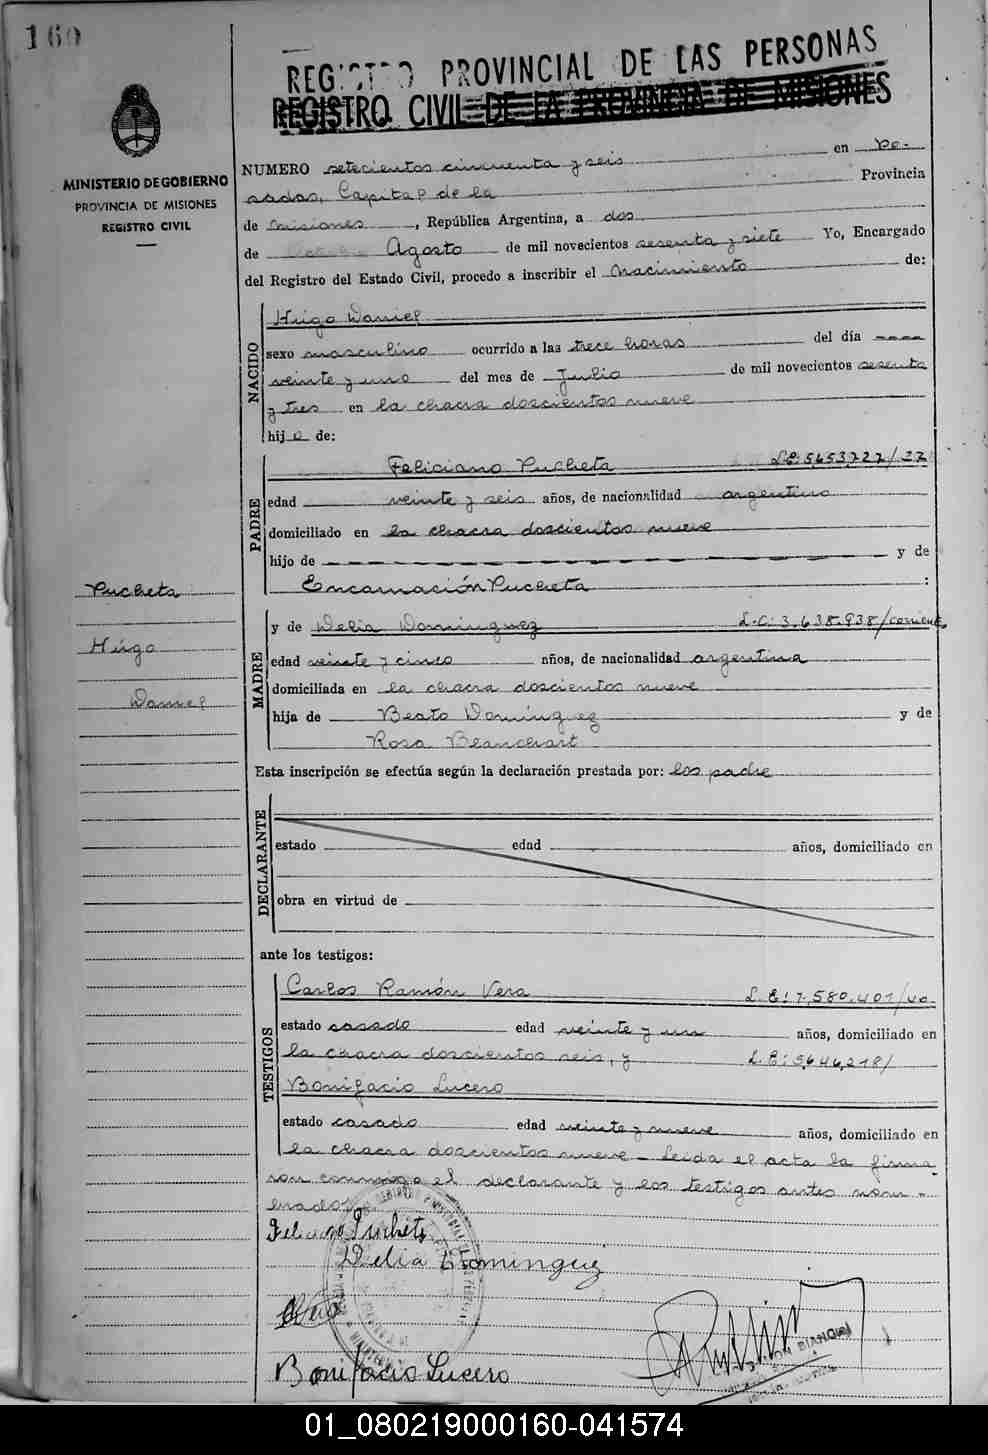 160
REGISTRO PROVINCIAL DE LAS PERSONAS
REGISTRO CIVIL DE LA PROVINCIA DE MISIONES
MINISTERIO DE GOBIERNO
PROVINCIA DE MISIONES
REGISTRO CIVIL
NUMERO setecientos cincuenta y seis en Po-
sadas, Capital de la Provincia
de Misiones, República Argentina, a dos
de Agosto de mil novecientos sesenta y siete Yo, Encargado
del Registro del Estado Civil, procedo a inscribir el Nacimiento de:
NACIDO
Hugo Daniel
sexo masculino ocurrido a las trece horas del día ----
veinte y uno del mes de Julio de mil novecientos sesenta
y tres en la chacra doscientos nueve
hijo de:
PADRE
Feliciano Pucheta L.E. 5653727/37
edad veinte y seis años, de nacionalidad argentino
domiciliado en la chacra doscientos nueve
hijo de y de
Encarnación Pucheta :
Pucheta
Hugo
Daniel
MADRE
y de Delia Dominguez L.C: 3.638.938/
edad veinte y cinco años, de nacionalidad argentina
domiciliada en la chacra doscientos nueve
hija de Beato Dominguez y de
Rosa Blanchart
Esta inscripción se efectúa según la declaración prestada por: los padre
DECLARANTE
estado edad años, domiciliado en
obra en virtud de
ante los testigos:
TESTIGOS
Carlos Ramón Vera L.E: 7.580.401/
estado casado edad veinte y un años, domiciliado en
la chacra doscientos seis, y L.E: 5,646,218/
Bonifacio Lucero
estado casado edad veinte y nueve años, domiciliado en
la chacra doscientos nueve - leida el acta la firma-
ron conmigo el declarante y los testigos antes nom-
brados
Feliciano Pucheta
Delia Dominguez
Bonifacio Lucero
BIANCHI
01_080219000160-041574